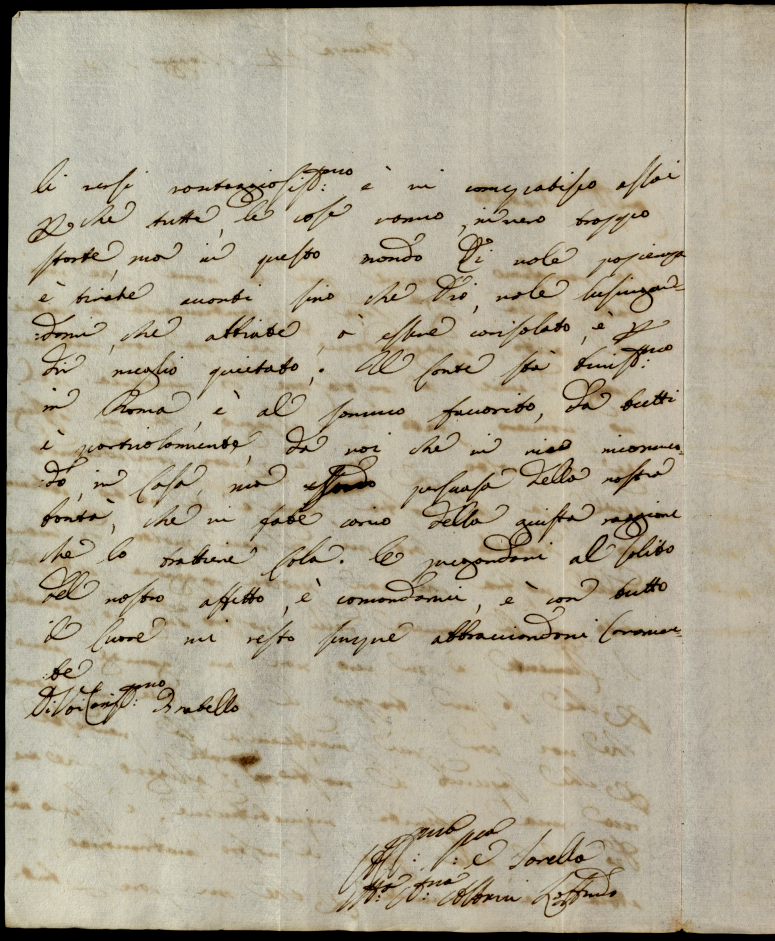 li resi vantaggiosiss:mo è vi compatisco assai
P che tutte, le cose vanno, in vero troppo
storte, mà in questo mondo Ci vole pacienza
è tirate avanti sino che Dio, vole lusingan=
:domi, che abbiate, à essere consolato, è P
dir meglio quietato,. Il Conte stà beniss:mo
in Roma, è al sommo favorito, da tutti
è particolarmente, da voi che in
:do, in Casa, mà essendo persuasa della vostra
bontà, che vi fate carico della giusta raggione
che lo trattiene Cola. Le pregandovi al solito
del vostro affetto, è comandarmi, è con tutto
il Cuore mi resto sempre abbracciandovi Caramen=
:te
Di Voi Cariss:mo Fratello
Aff:ma è Sorella